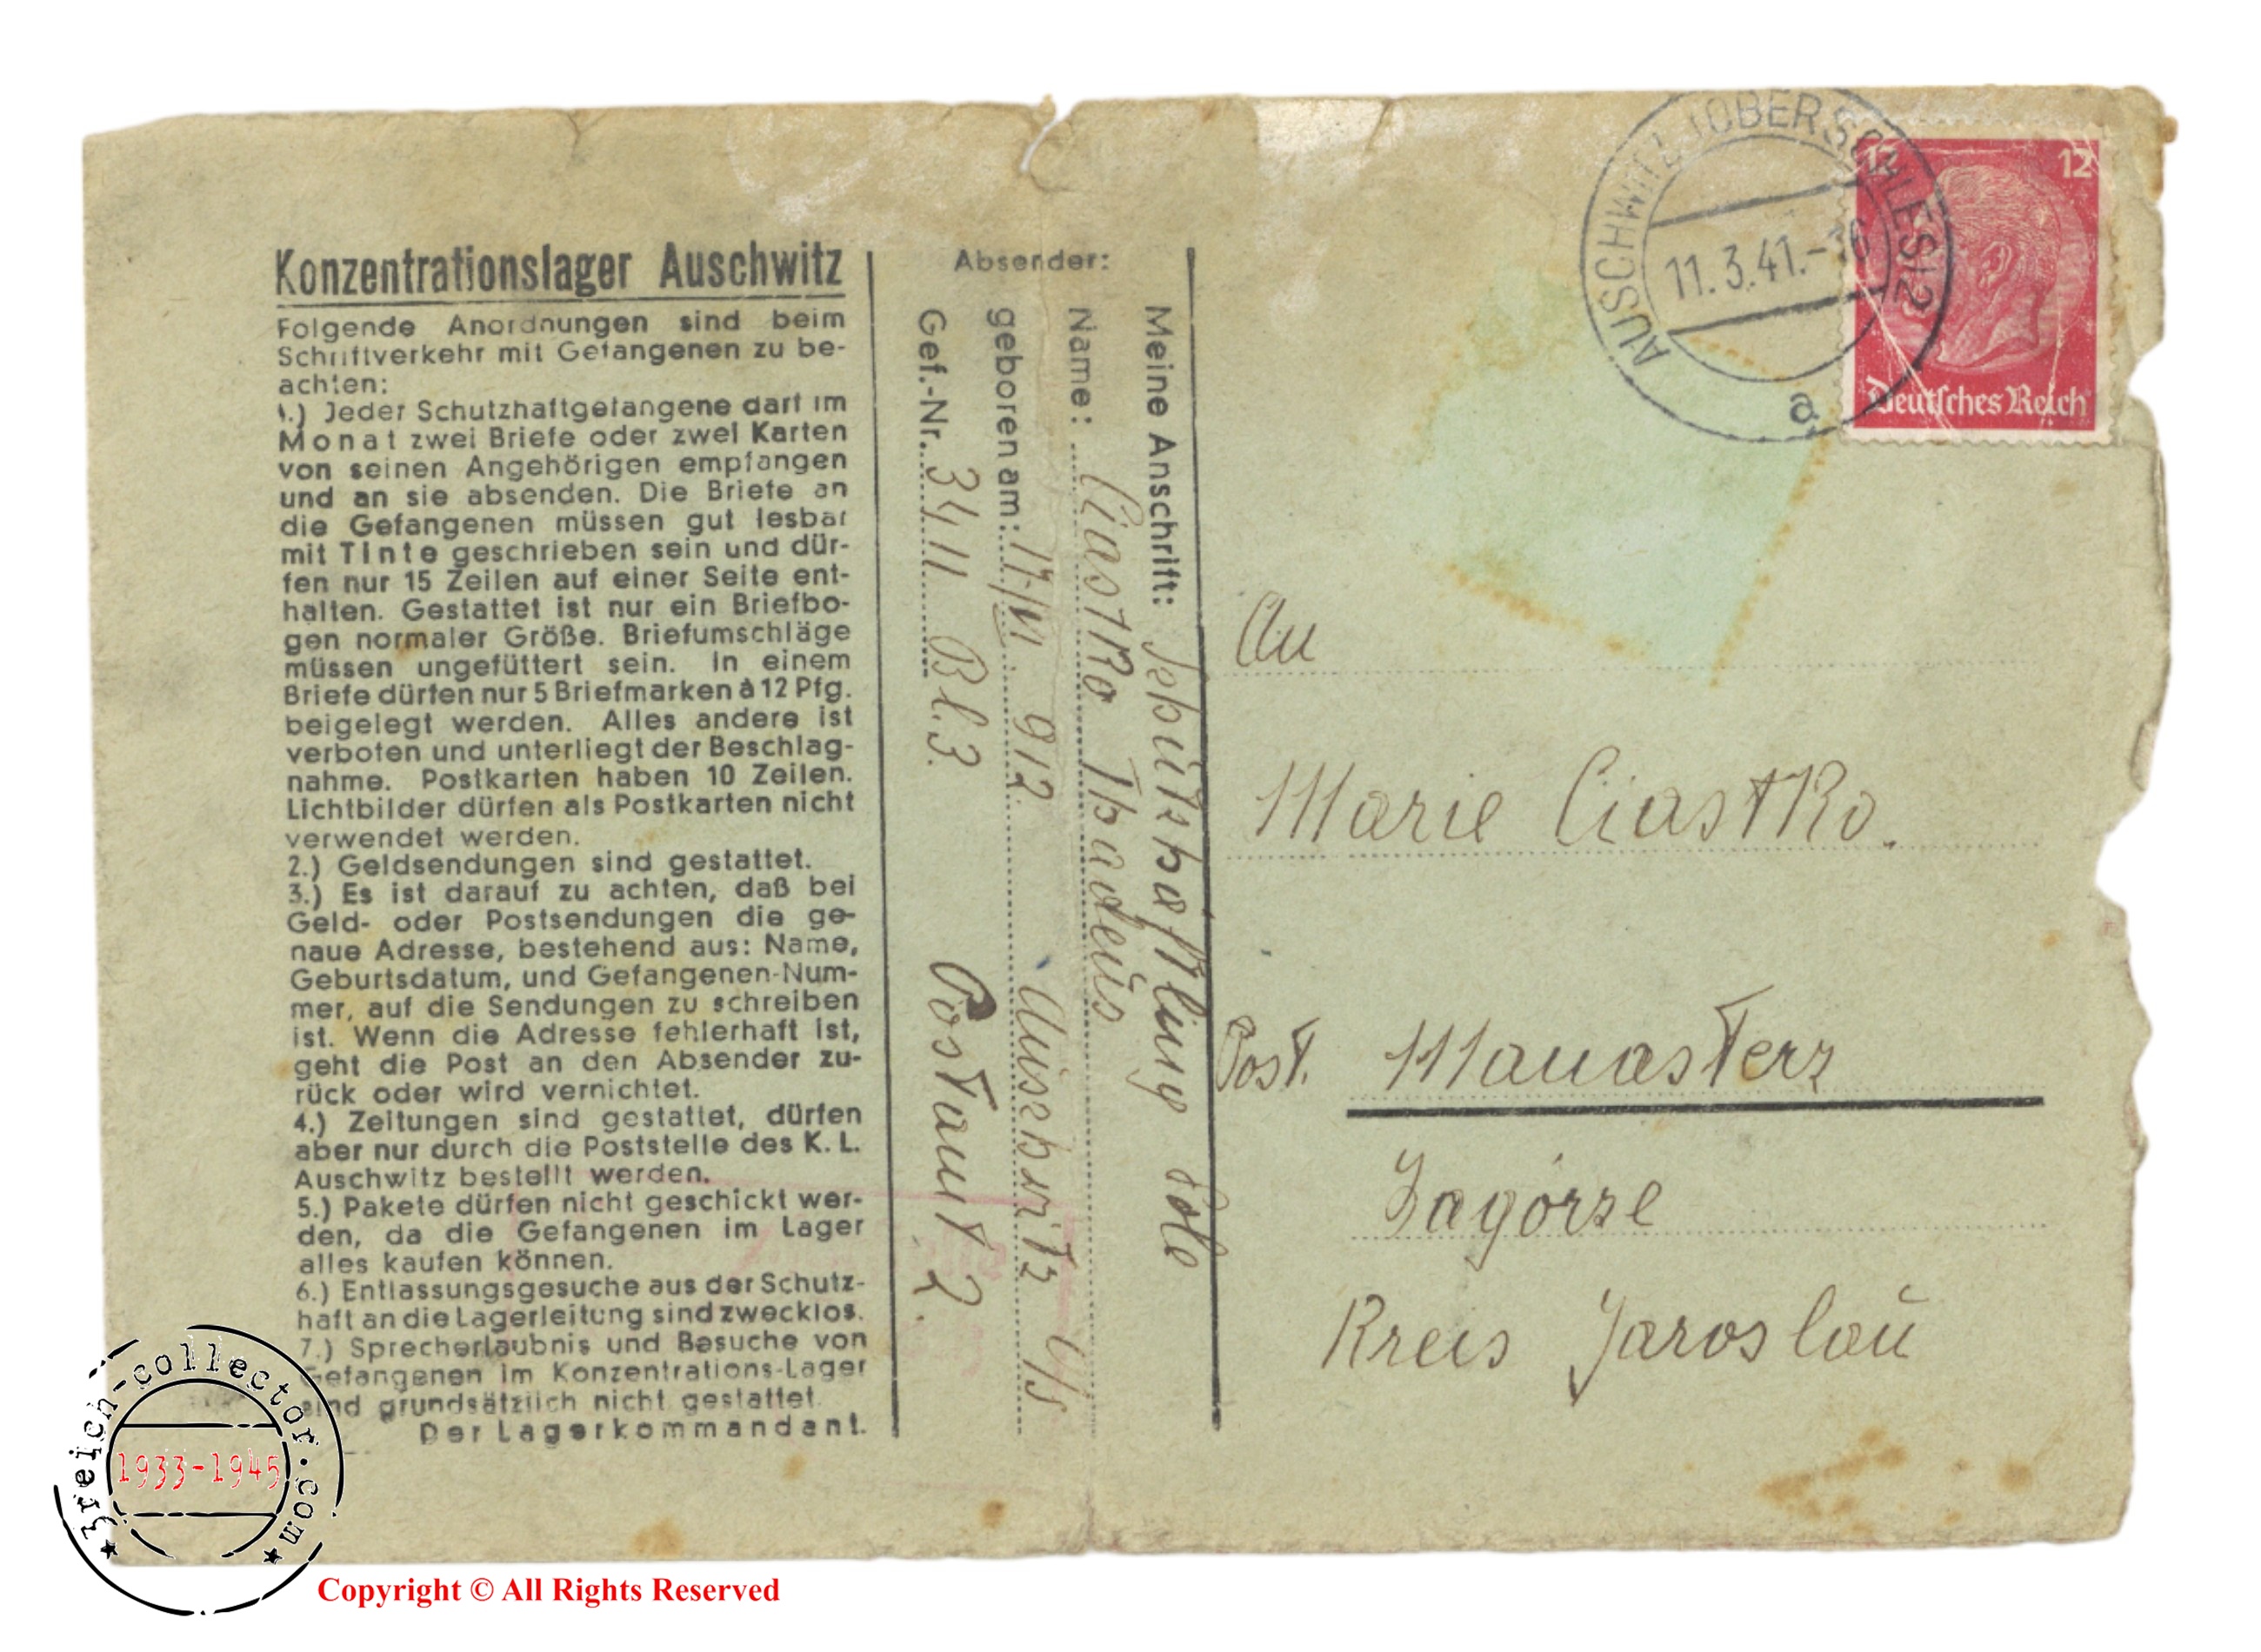 Konzentrationslager Auschwitz
Folgende Anordnungen sind beim
Schriftverkehr mit Gefangenen zu be-
achten:
1.) Jeder Schutzhaftgefangene darf im
Monat zwei Briefe oder zwei Karten
von seinen Angehörigen empfangen
und an sie absenden. Die Briefe an
die Gefangenen müssen gut lesbar
mit Tinte geschrieben sein und dür-
fen nur 15 Zeilen auf einer Seite ent-
halten. Gestattet ist nur ein Briefbo-
gen normaler Größe. Briefumschläge
müssen ungefüttert sein. In einem
Briefe dürfen nur 5 Briefmarken à 12 Pfg.
beigelegt werden. Alles andere ist
verboten und unterliegt der Beschlag-
nahme. Postkarten haben 10 Zeilen.
Lichtbilder dürfen als Postkarten nicht
verwendet werden.
2.) Geldsendungen sind gestattet.
3.) Es ist darauf zu achten, daß bei
Geld- oder Postsendungen die ge-
naue Adresse, bestehend aus: Name,
Geburtsdatum, und Gefangenen-Num-
mer, auf die Sendungen zu schreiben
ist. Wenn die Adresse fehlerhaft ist,
geht die Post an den Absender zu-
rück oder wird vernichtet.
4.) Zeitungen sind gestattet, dürfen
aber nur durch die Poststelle des K. L.
Auschwitz bestellt werden.
5.) Pakete dürfen nicht geschickt wer-
den, da die Gefangenen im Lager
alles kaufen können.
6.) Entlassungsgesuche aus der Schutz-
haft an die Lagerleitung sind zwecklos.
7.) Sprecherlaubnis und Besuche von
Gefangenen im Konzentrations-Lager
sind grundsätzlich nicht gestattet.
Der Lagerkommandant.
Absender:
Meine Anschrift: Schutzhäftling
Name: Ciastko Thadeus
geboren am: 17/VI. 912. Auschwitz O/S
Gef.-Nr. 3411 Bl. 3. Postamt 2.
AUSCHWITZ (OBERSCHLES) 2
11.3.41.
a
12 12
Deutsches Reich
An
Marie Ciastko.
Post. Manasterz
Zagórze
Kreis Jaroslau
3reich-collector.com
1933-1945
Copyright © All Rights Reserved